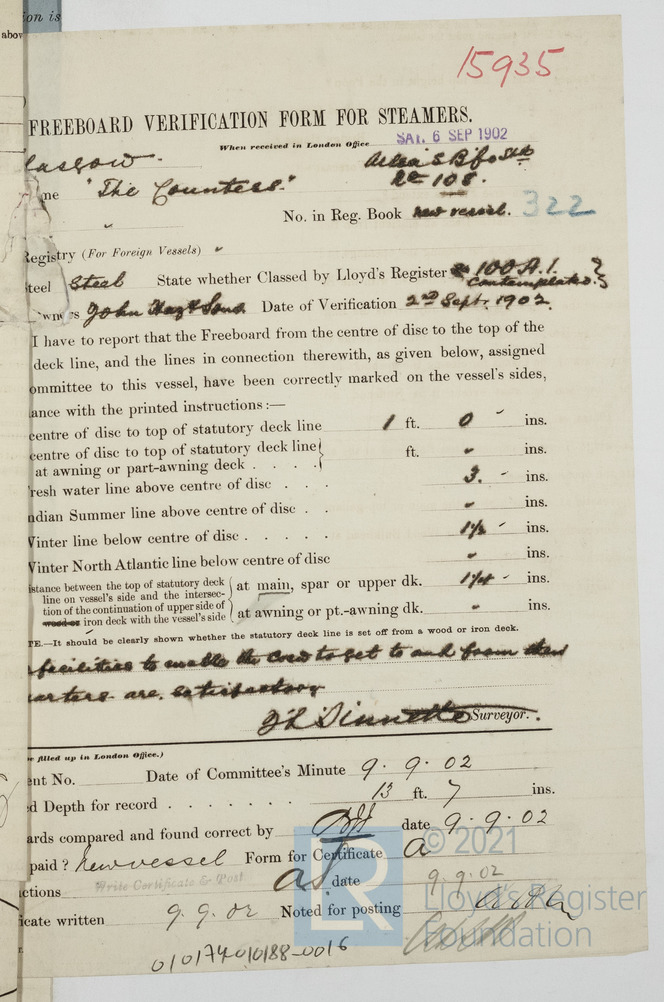 ion is
above
15935
FREEBOARD VERIFICATION FORM FOR STEAMERS.
When received in London Office SAT. 6 SEP 1902
lasgow. Ailsa S. B. Co
me "The Countess." No 108.
" No. in Reg. Book new vessel. 322
Registry (For Foreign Vessels) "
teel Steel State whether Classed by Lloyd's Register 100 A.1. contemplated.
wners John Hay & Sons. Date of Verification 2nd Sept. 1902.
I have to report that the Freeboard from the centre of disc to the top of the
deck line, and the lines in connection therewith, as given below, assigned
ommittee to this vessel, have been correctly marked on the vessel's sides,
ance with the printed instructions :—
centre of disc to top of statutory deck line 1 ft. 0 ins.
centre of disc to top of statutory deck line
at awning or part-awning deck . . . . ft. " ins.
resh water line above centre of disc . . . 3. ins.
ndian Summer line above centre of disc . . " ins.
Vinter line below centre of disc . . . . . 1½ ins.
Vinter North Atlantic line below centre of disc " ins.
istance between the top of statutory deck
line on vessel's side and the intersec-
tion of the continuation of upper side of
iron deck with the vessel's side
at main, spar or upper dk. 1¼ ins.
at awning or pt.-awning dk. " ins.
TE.—It should be clearly shown whether the statutory deck line is set off from a wood or iron deck.
facilities to enable the crew to get to and from their
uarters are satisfactory
Surveyor.
e filled up in London Office.)
ent No. Date of Committee's Minute 9. 9. 02
d Depth for record . . . . . . . 13 ft. 7 ins.
ards compared and found correct by date 9. 9. 02
paid ? New vessel Form for Certificate a
ctions Write Certificate & Post date 9. 9. 02
icate written 9. 9. 02 Noted for posting
010174-010188-0016
LR
© 2021
Lloyd's Register
Foundation